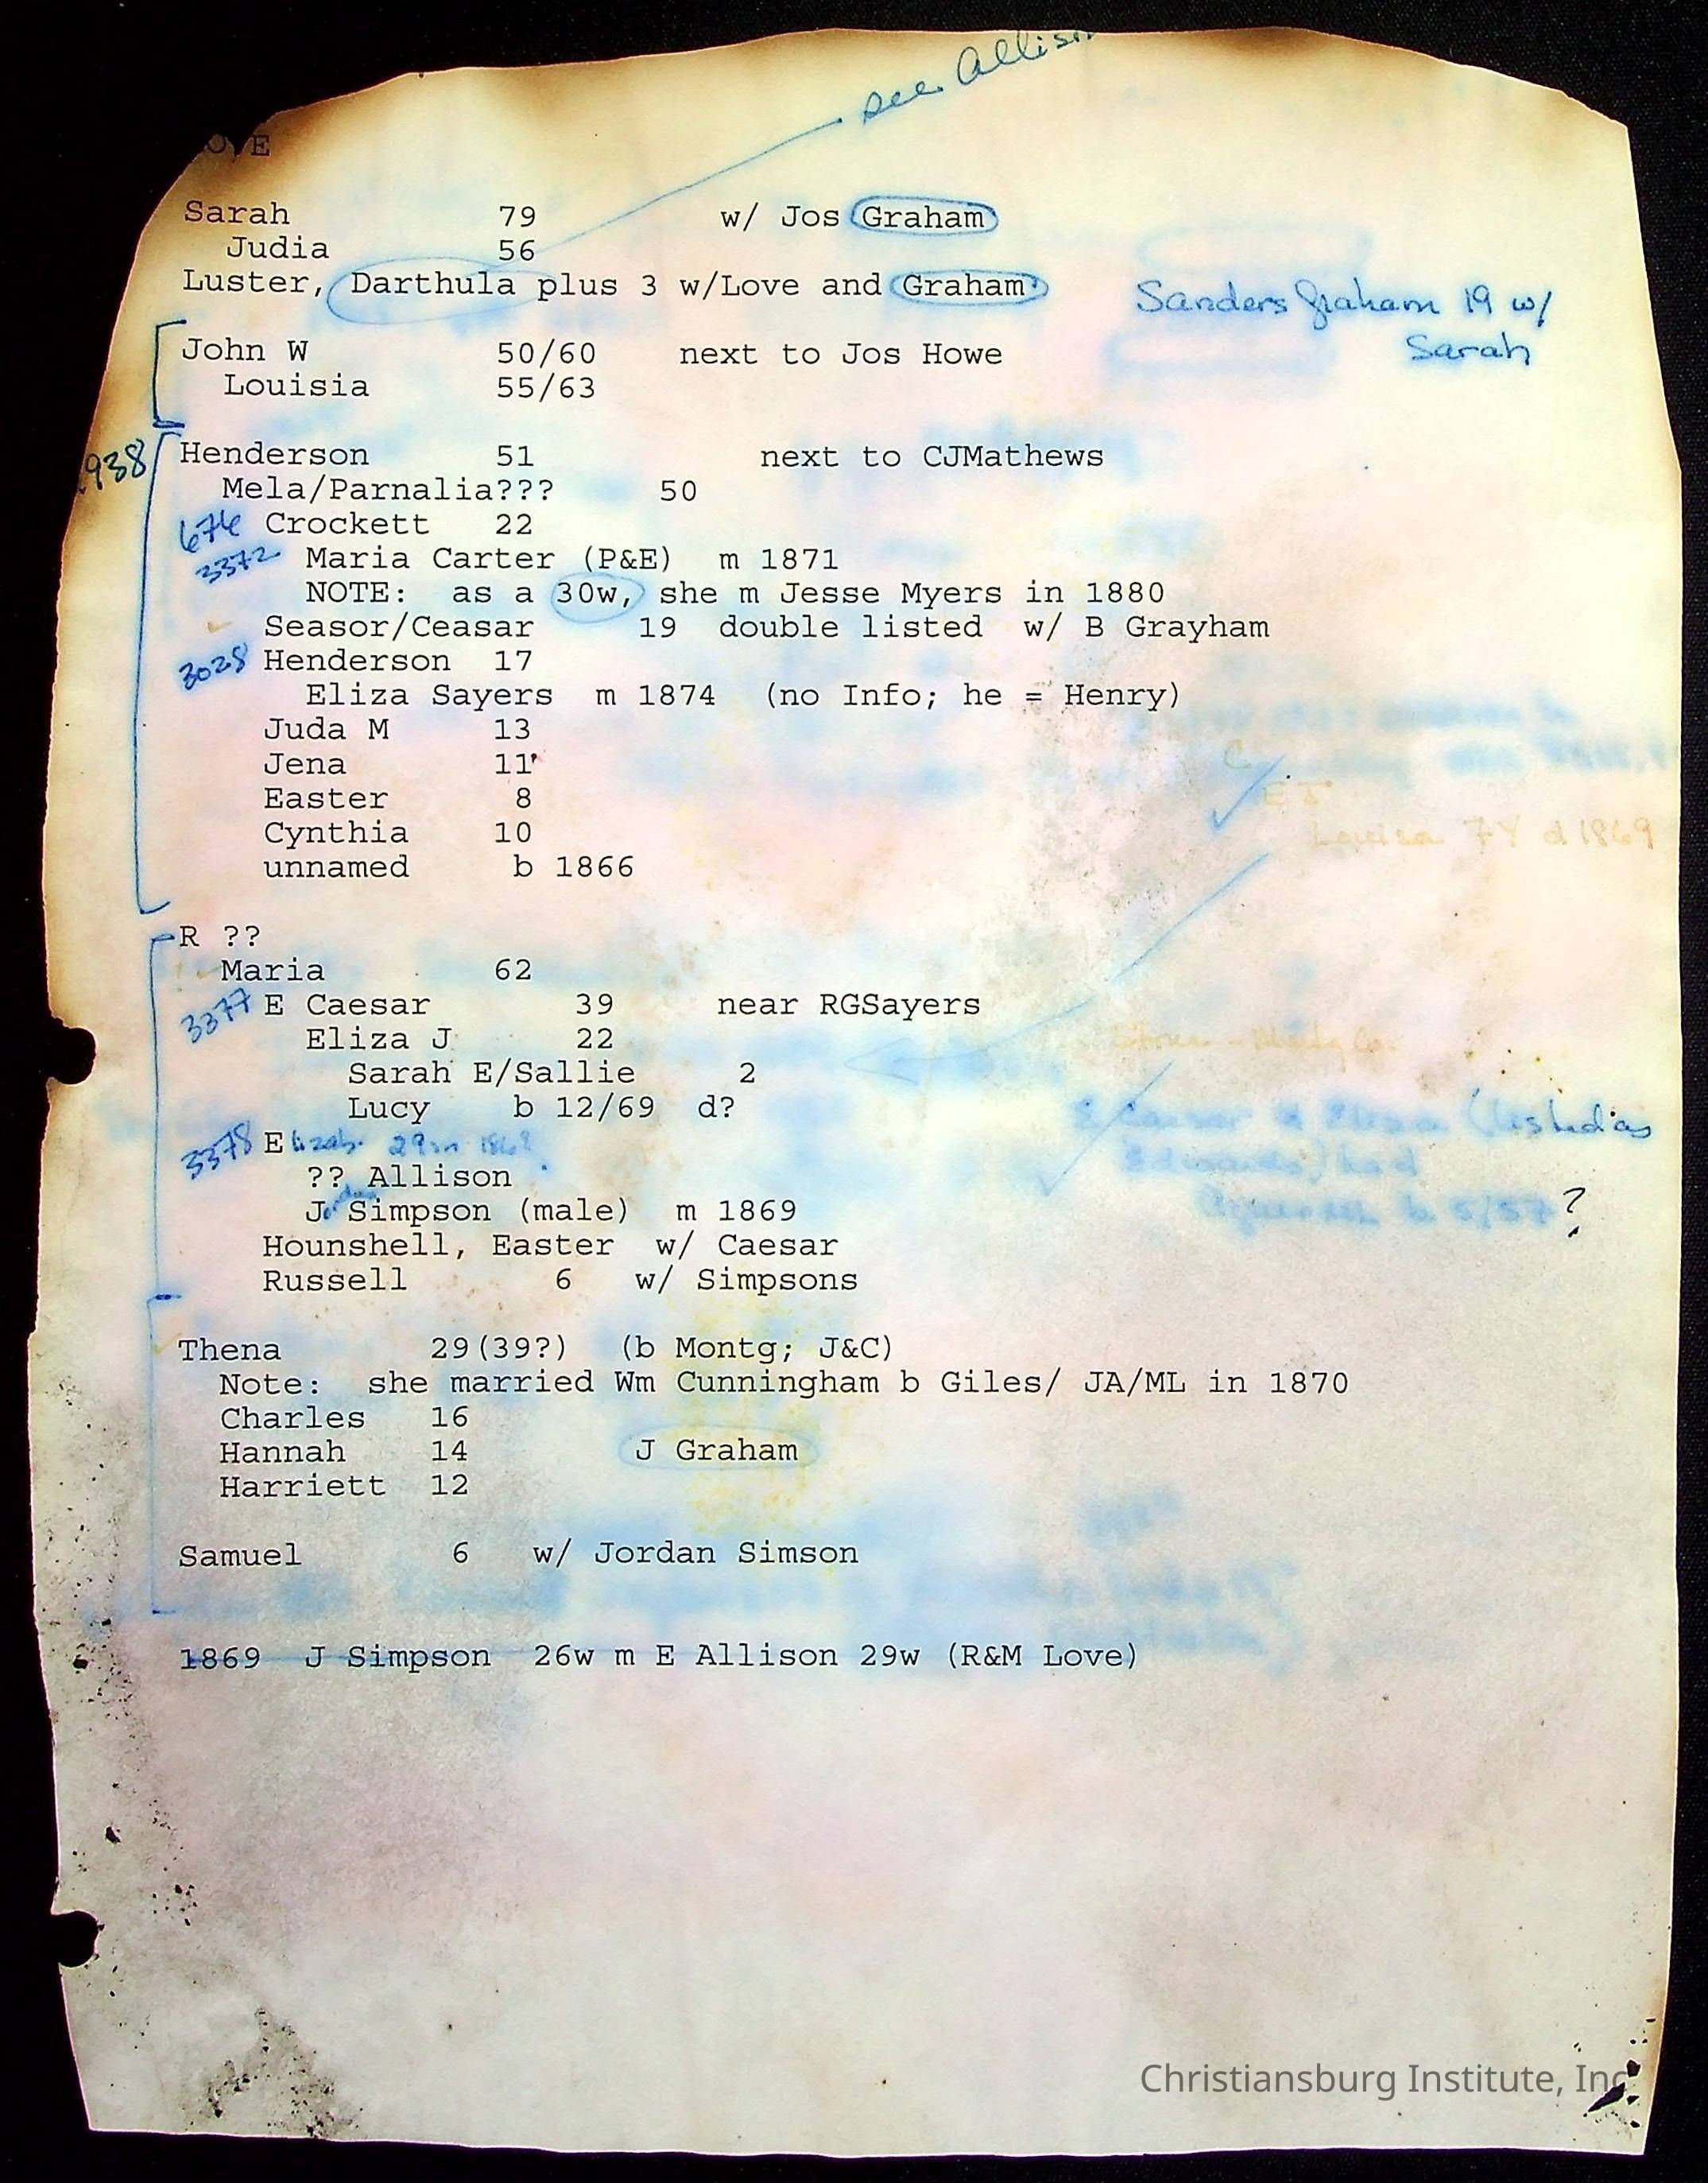 see Allison
OVE
Sarah 79 w/ Jos Graham
Judia 56
Luster, Darthula plus 3 w/Love and Graham
Sanders Graham 19 w/
Sarah
John W 50/60 next to Jos Howe
Louisia 55/63
938
Henderson 51 next to CJMathews
Mela/Parnalia??? 50
Crockett 22
3372 Maria Carter (P&E) m 1871
NOTE: as a 30w, she m Jesse Myers in 1880
Seasor/Ceasar 19 double listed w/ B Grayham
3028 Henderson 17
Eliza Sayers m 1874 (no Info; he = Henry)
Juda M 13
Jena 11
Easter 8
Cynthia 10
Louisa 7Y d 1869
unnamed b 1866
R ??
Maria 62
3377 E Caesar 39 near RGSayers
Eliza J 22
Sarah E/Sallie 2
Lucy b 12/69 d?
E Caesar & Eliza (listed as
Edwards) had
b 5/57 ?
3378 Elizab. 29 in 186
?? Allison
Jordan Simpson (male) m 1869
Hounshell, Easter w/ Caesar
Russell 6 w/ Simpsons
Thena 29(39?) (b Montg; J&C)
Note: she married Wm Cunningham b Giles/ JA/ML in 1870
Charles 16
Hannah 14 J Graham
Harriett 12
Samuel 6 w/ Jordan Simson
1869 J Simpson 26w m E Allison 29w (R&M Love)
Christiansburg Institute, Inc